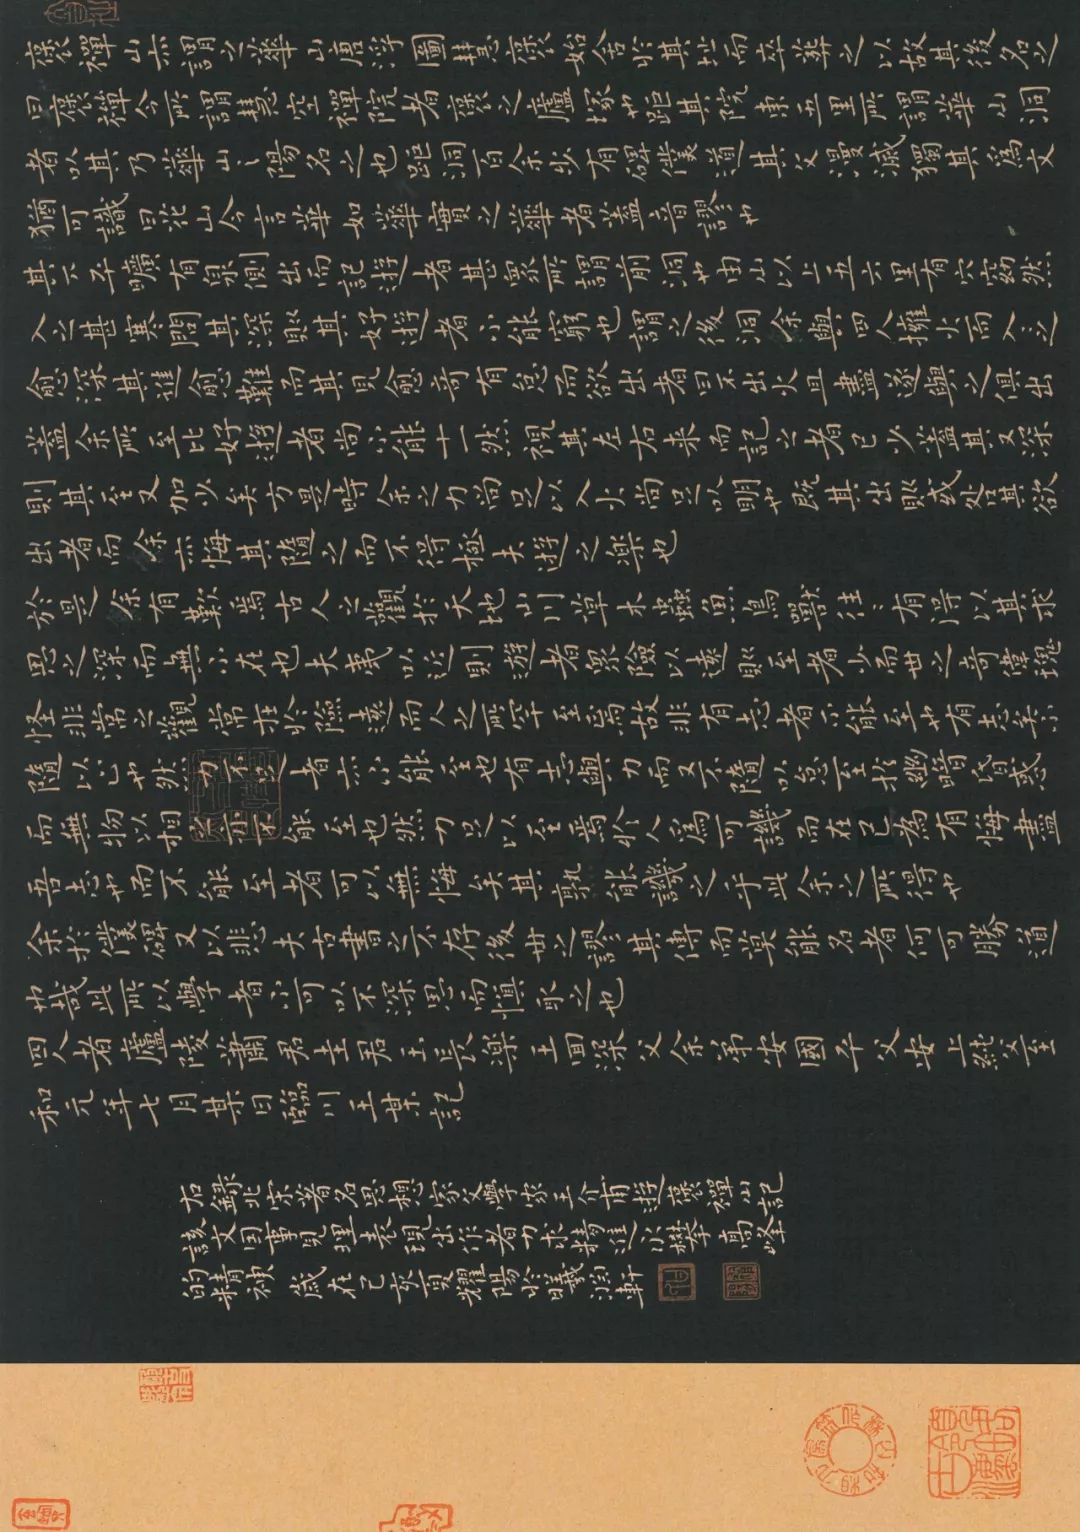 褒禪山亦謂之華山唐浮圖慧褒始舍於其址而卒葬之以故其後名之
曰褒禪今所謂慧空禪院者褒之廬塚也距其院東五里所謂華山洞
者以其乃華山之陽名之也距洞百余步有碑僕道其文漫滅獨其為文
猶可識曰花山今言華如華實之華者蓋音謬也
其下平曠有泉側出而記遊者甚眾所謂前洞也由山以上五六里有穴窈然
入之甚寒問其深則其好遊者不能窮也謂之後洞余與四人擁火而入之
愈深其進愈難而其見愈奇有怠而欲出者曰不出火且盡遂與之俱出
蓋余所至比好遊者尚不能十一然視其左右來而記之者已少蓋其又深
則其至又加少矣方是時余之力尚足以入火尚足以明也既其出則或咎其欲
出者而余亦悔其隨之而不得極夫遊之樂也
於是余有歎焉古人之觀於天地山川草木蟲魚鳥獸往々有得以其求
思之深而無不在也夫夷以近則遊者眾險以遠則至者少而世之奇偉瑰
怪非常之觀常在於險遠而人之所罕至焉故非有志者不能至也有志矣不
隨以止也然力不足者亦不能至也有志與力而又不隨以怠至於幽暗昏惑
而無物以相之亦不能至也然力足以至焉於人為可譏而在己為有悔盡
吾志也而不能至者可以無悔矣其孰能譏之乎此余之所得也
余於僕碑又以悲夫古書之不存後世之謬其傳而莫能名者何可勝道
也哉此所以學者不可以不深思而慎取之也
四人者廬陵蕭君圭君玉長樂王回深父余弟安國平父安上純父至
和元年七月某日臨川王某記
右錄北宋著名思想家文學家王介甫遊褒禪山記
該文因事見理表現出作者力求精進不攀高峰
的精神歲在己亥夏耀陽於曦潤軒